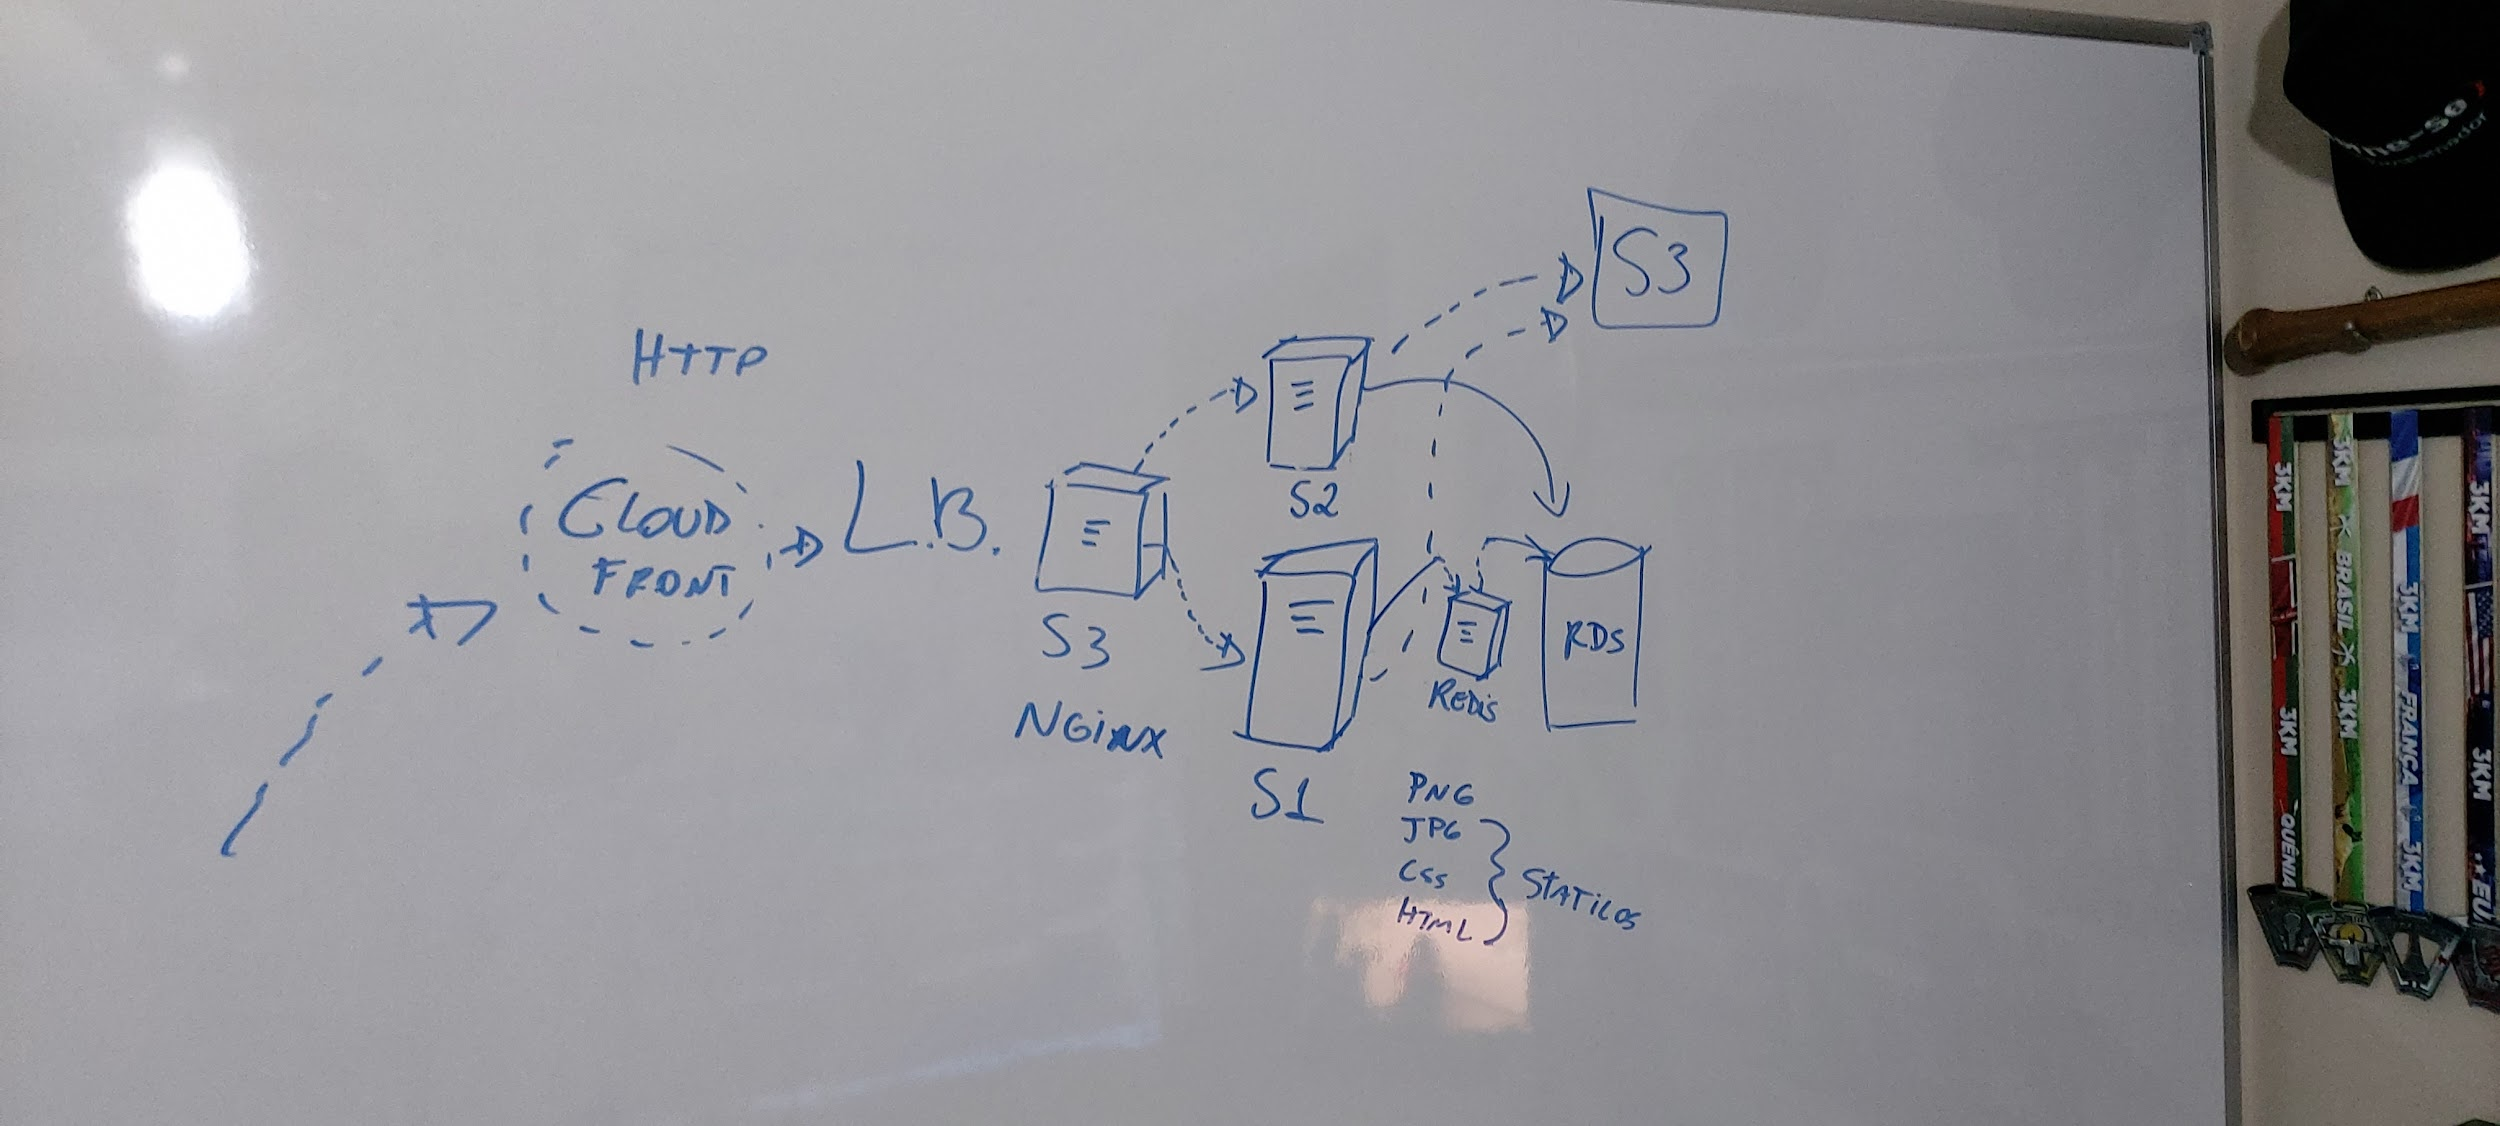 HTTP
CLOUD
FRONT
L.B.
S3
NGiNX
S2
S1
S3
REDiS
RDS
PNG
JPG
CSS
HTML
STATiCOS
3KM
3KM
QUÊNIA
3KM
BRASIL
3KM
3KM
FRANÇA
3KM
3KM
3KM